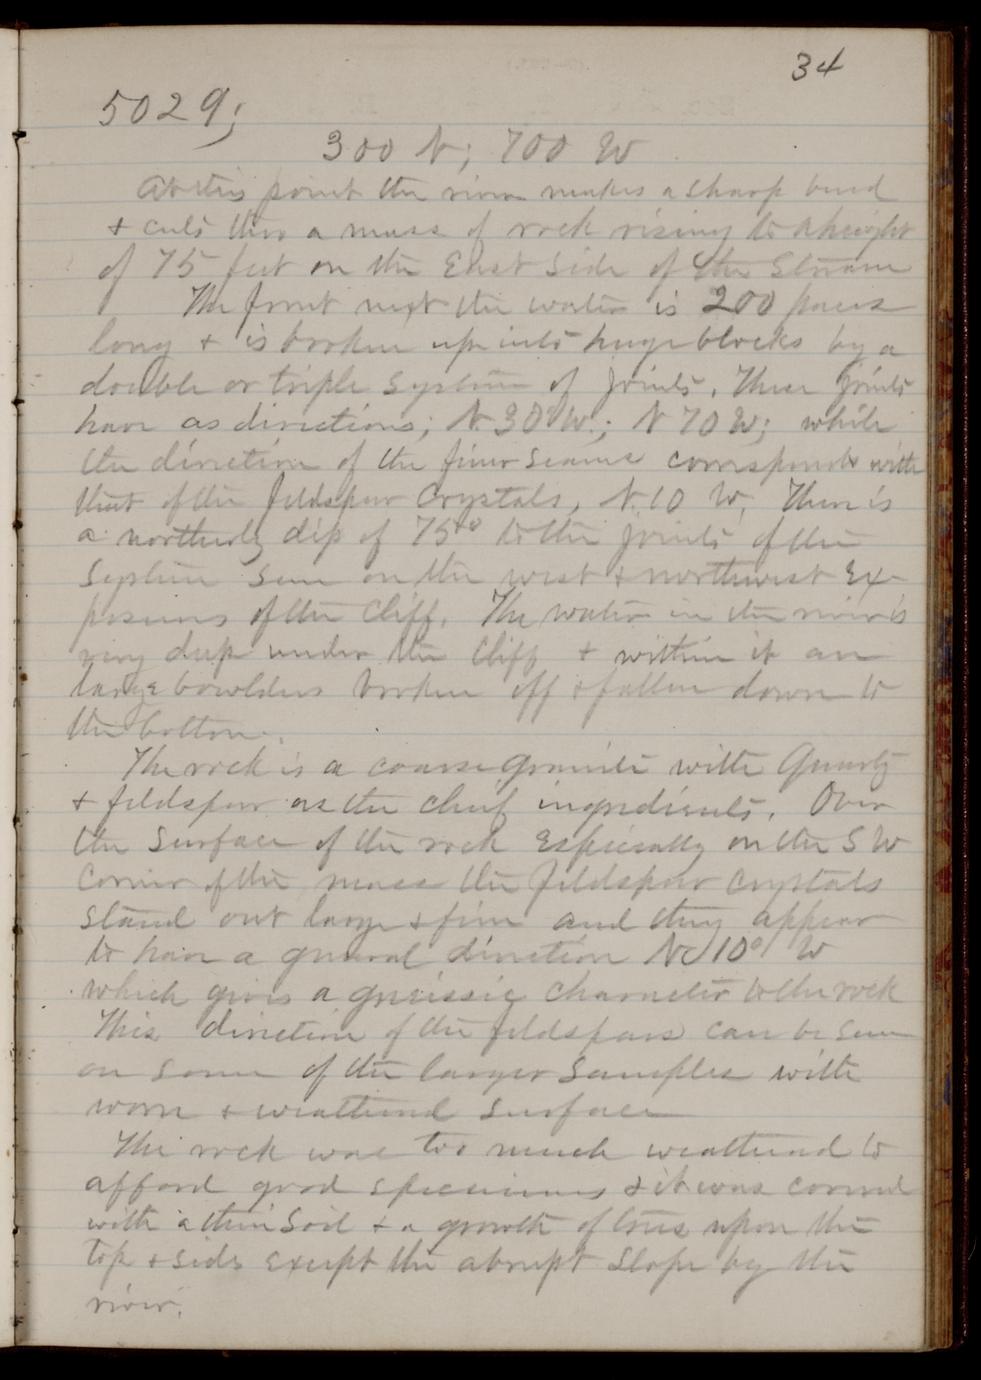 34
5029;
300 N; 700 W
At this point the river makes a sharp bend
& cuts thro a mass of rock rising to a height
of 75 feet on the East Side of the Stream
The front next the water is 200 paces
long & is broken up into huge blocks by a
double or triple system of joints. These joints
have as directions; N 30° W.; N 70 W; while
the direction of the finer seams corresponds with
that of the feldspar Crystals, N. 10 W. There is
a northerly dip of 75° to the joints of the
System seen on the west & northwest Ex-
posures of the Cliff. The water in the river is
very deep under the Cliff & within it are
large bowlders broken off & fallen down to
the bottom.
The rock is a coarse granite with Quartz
& feldspar as the cheif ingredients. Over
the Surface of the rock Especially on the S W
Corner of the mass the feldspar Crystals
stand out large & fine and they appear
to have a general direction N 10° W
which gives a gneissic Character to the rock
This direction of the feldspars can be seen
on some of the larger Samples with
worn & weathered Surface
The rock was too much weathered to
afford good specimens & it was covered
with a thin Soil & a growth of trees upon the
top & sides except the abrupt slope by the
river.